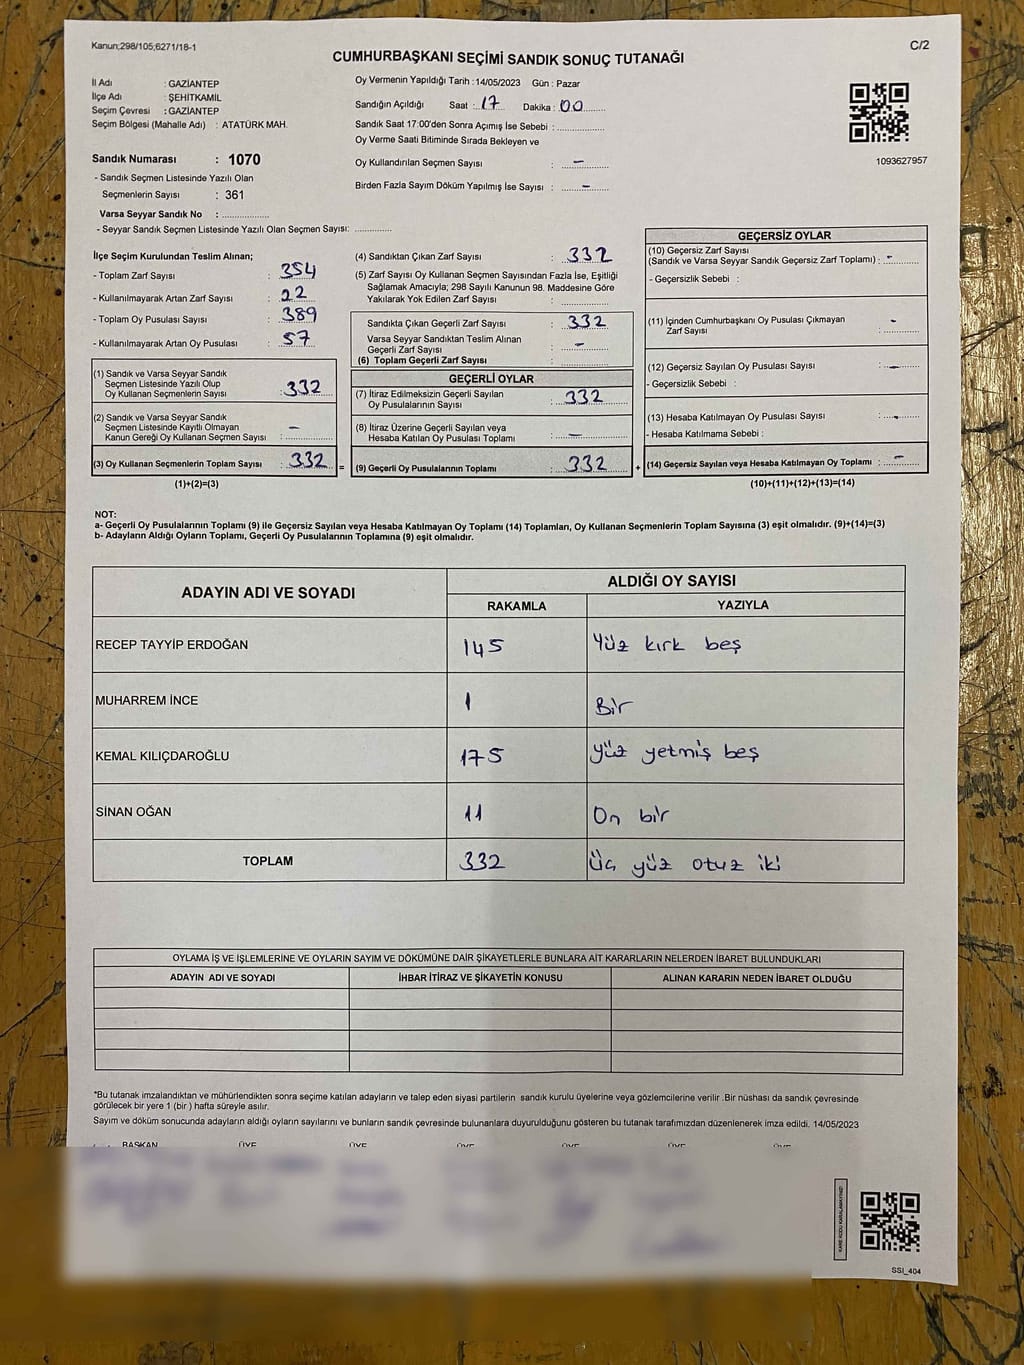 Kanun;298/105;6271/18-1
C/2
CUMHURBAŞKANI SEÇİMİ SANDIK SONUÇ TUTANAĞI
İl Adı : GAZİANTEP
İlçe Adı : ŞEHİTKAMİL
Seçim Çevresi : GAZİANTEP
Seçim Bölgesi (Mahalle Adı) : ATATÜRK MAH.
Sandık Numarası : 1070
- Sandık Seçmen Listesinde Yazılı Olan
Seçmenlerin Sayısı : 361
Varsa Seyyar Sandık No : ..................
- Seyyar Sandık Seçmen Listesinde Yazılı Olan Seçmen Sayısı: ..............
Oy Vermenin Yapıldığı Tarih : 14/05/2023 Gün : Pazar
Sandığın Açıldığı Saat : 17 Dakika : 00
Sandık Saat 17:00'den Sonra Açımış İse Sebebi : ..................
Oy Verme Saati Bitiminde Sırada Bekleyen ve
Oy Kullandırılan Seçmen Sayısı : -
Birden Fazla Sayım Döküm Yapılmış İse Sayısı : -
1093627957
İlçe Seçim Kurulundan Teslim Alınan;
- Toplam Zarf Sayısı : 354
- Kullanılmayarak Artan Zarf Sayısı : 22
- Toplam Oy Pusulası Sayısı : 389
- Kullanılmayarak Artan Oy Pusulası : 57
(1) Sandık ve Varsa Seyyar Sandık
Seçmen Listesinde Yazılı Olup
Oy Kullanan Seçmenlerin Sayısı : 332
(2) Sandık ve Varsa Seyyar Sandık
Seçmen Listesinde Kayıtlı Olmayan
Kanun Gereği Oy Kullanan Seçmen Sayısı : -
(3) Oy Kullanan Seçmenlerin Toplam Sayısı : 332 =
(1)+(2)=(3)
(4) Sandıktan Çıkan Zarf Sayısı : 332
(5) Zarf Sayısı Oy Kullanan Seçmen Sayısından Fazla İse, Eşitliği
Sağlamak Amacıyla; 298 Sayılı Kanunun 98. Maddesine Göre
Yakılarak Yok Edilen Zarf Sayısı : ..................
Sandıkta Çıkan Geçerli Zarf Sayısı : 332
Varsa Seyyar Sandıktan Teslim Alınan
Geçerli Zarf Sayısı : -
(6) Toplam Geçerli Zarf Sayısı : ..................
GEÇERLİ OYLAR
(7) İtiraz Edilmeksizin Geçerli Sayılan
Oy Pusulalarının Sayısı : 332
(8) İtiraz Üzerine Geçerli Sayılan veya
Hesaba Katılan Oy Pusulası Toplamı : -
(9) Geçerli Oy Pusulalarının Toplamı : 332 +
GEÇERSİZ OYLAR
(10) Geçersiz Zarf Sayısı
(Sandık ve Varsa Seyyar Sandık Geçersiz Zarf Toplamı) : -
- Geçersizlik Sebebi :
(11) İçinden Cumhurbaşkanı Oy Pusulası Çıkmayan
Zarf Sayısı : -
(12) Geçersiz Sayılan Oy Pusulası Sayısı : -
- Geçersizlik Sebebi :
(13) Hesaba Katılmayan Oy Pusulası Sayısı : -
- Hesaba Katılmama Sebebi :
(14) Geçersiz Sayılan veya Hesaba Katılmayan Oy Toplamı : -
(10)+(11)+(12)+(13)=(14)
NOT:
a- Geçerli Oy Pusulalarının Toplamı (9) ile Geçersiz Sayılan veya Hesaba Katılmayan Oy Toplamı (14) Toplamları, Oy Kullanan Seçmenlerin Toplam Sayısına (3) eşit olmalıdır. (9)+(14)=(3)
b- Adayların Aldığı Oyların Toplamı, Geçerli Oy Pusulalarının Toplamına (9) eşit olmalıdır.
ADAYIN ADI VE SOYADI
ALDIĞI OY SAYISI
RAKAMLA YAZIYLA
RECEP TAYYİP ERDOĞAN 145 Yüz kırk beş
MUHARREM İNCE 1 Bir
KEMAL KILIÇDAROĞLU 175 yüz yetmiş beş
SİNAN OĞAN 11 On bir
TOPLAM 332 Üç yüz otuz iki
OYLAMA İŞ VE İŞLEMLERİNE VE OYLARIN SAYIM VE DÖKÜMÜNE DAİR ŞİKAYETLERLE BUNLARA AİT KARARLARIN NELERDEN İBARET BULUNDUKLARI
ADAYIN ADI VE SOYADI İHBAR İTİRAZ VE ŞİKAYETİN KONUSU ALINAN KARARIN NEDEN İBARET OLDUĞU
*Bu tutanak imzalandıktan ve mühürlendikten sonra seçime katılan adayların ve talep eden siyasi partilerin sandık kurulu üyelerine veya gözlemcilerine verilir .Bir nüshası da sandık çevresinde
görülecek bir yere 1 (bir ) hafta süreyle asılır.
Sayım ve döküm sonucunda adayların aldığı oyların sayılarını ve bunların sandık çevresinde bulunanlara duyurulduğunu gösteren bu tutanak tarafımızdan düzenlenerek imza edildi. 14/05/2023
BAŞKAN ÜYE ÜYE ÜYE ÜYE ÜYE ÜYE
SSI_404